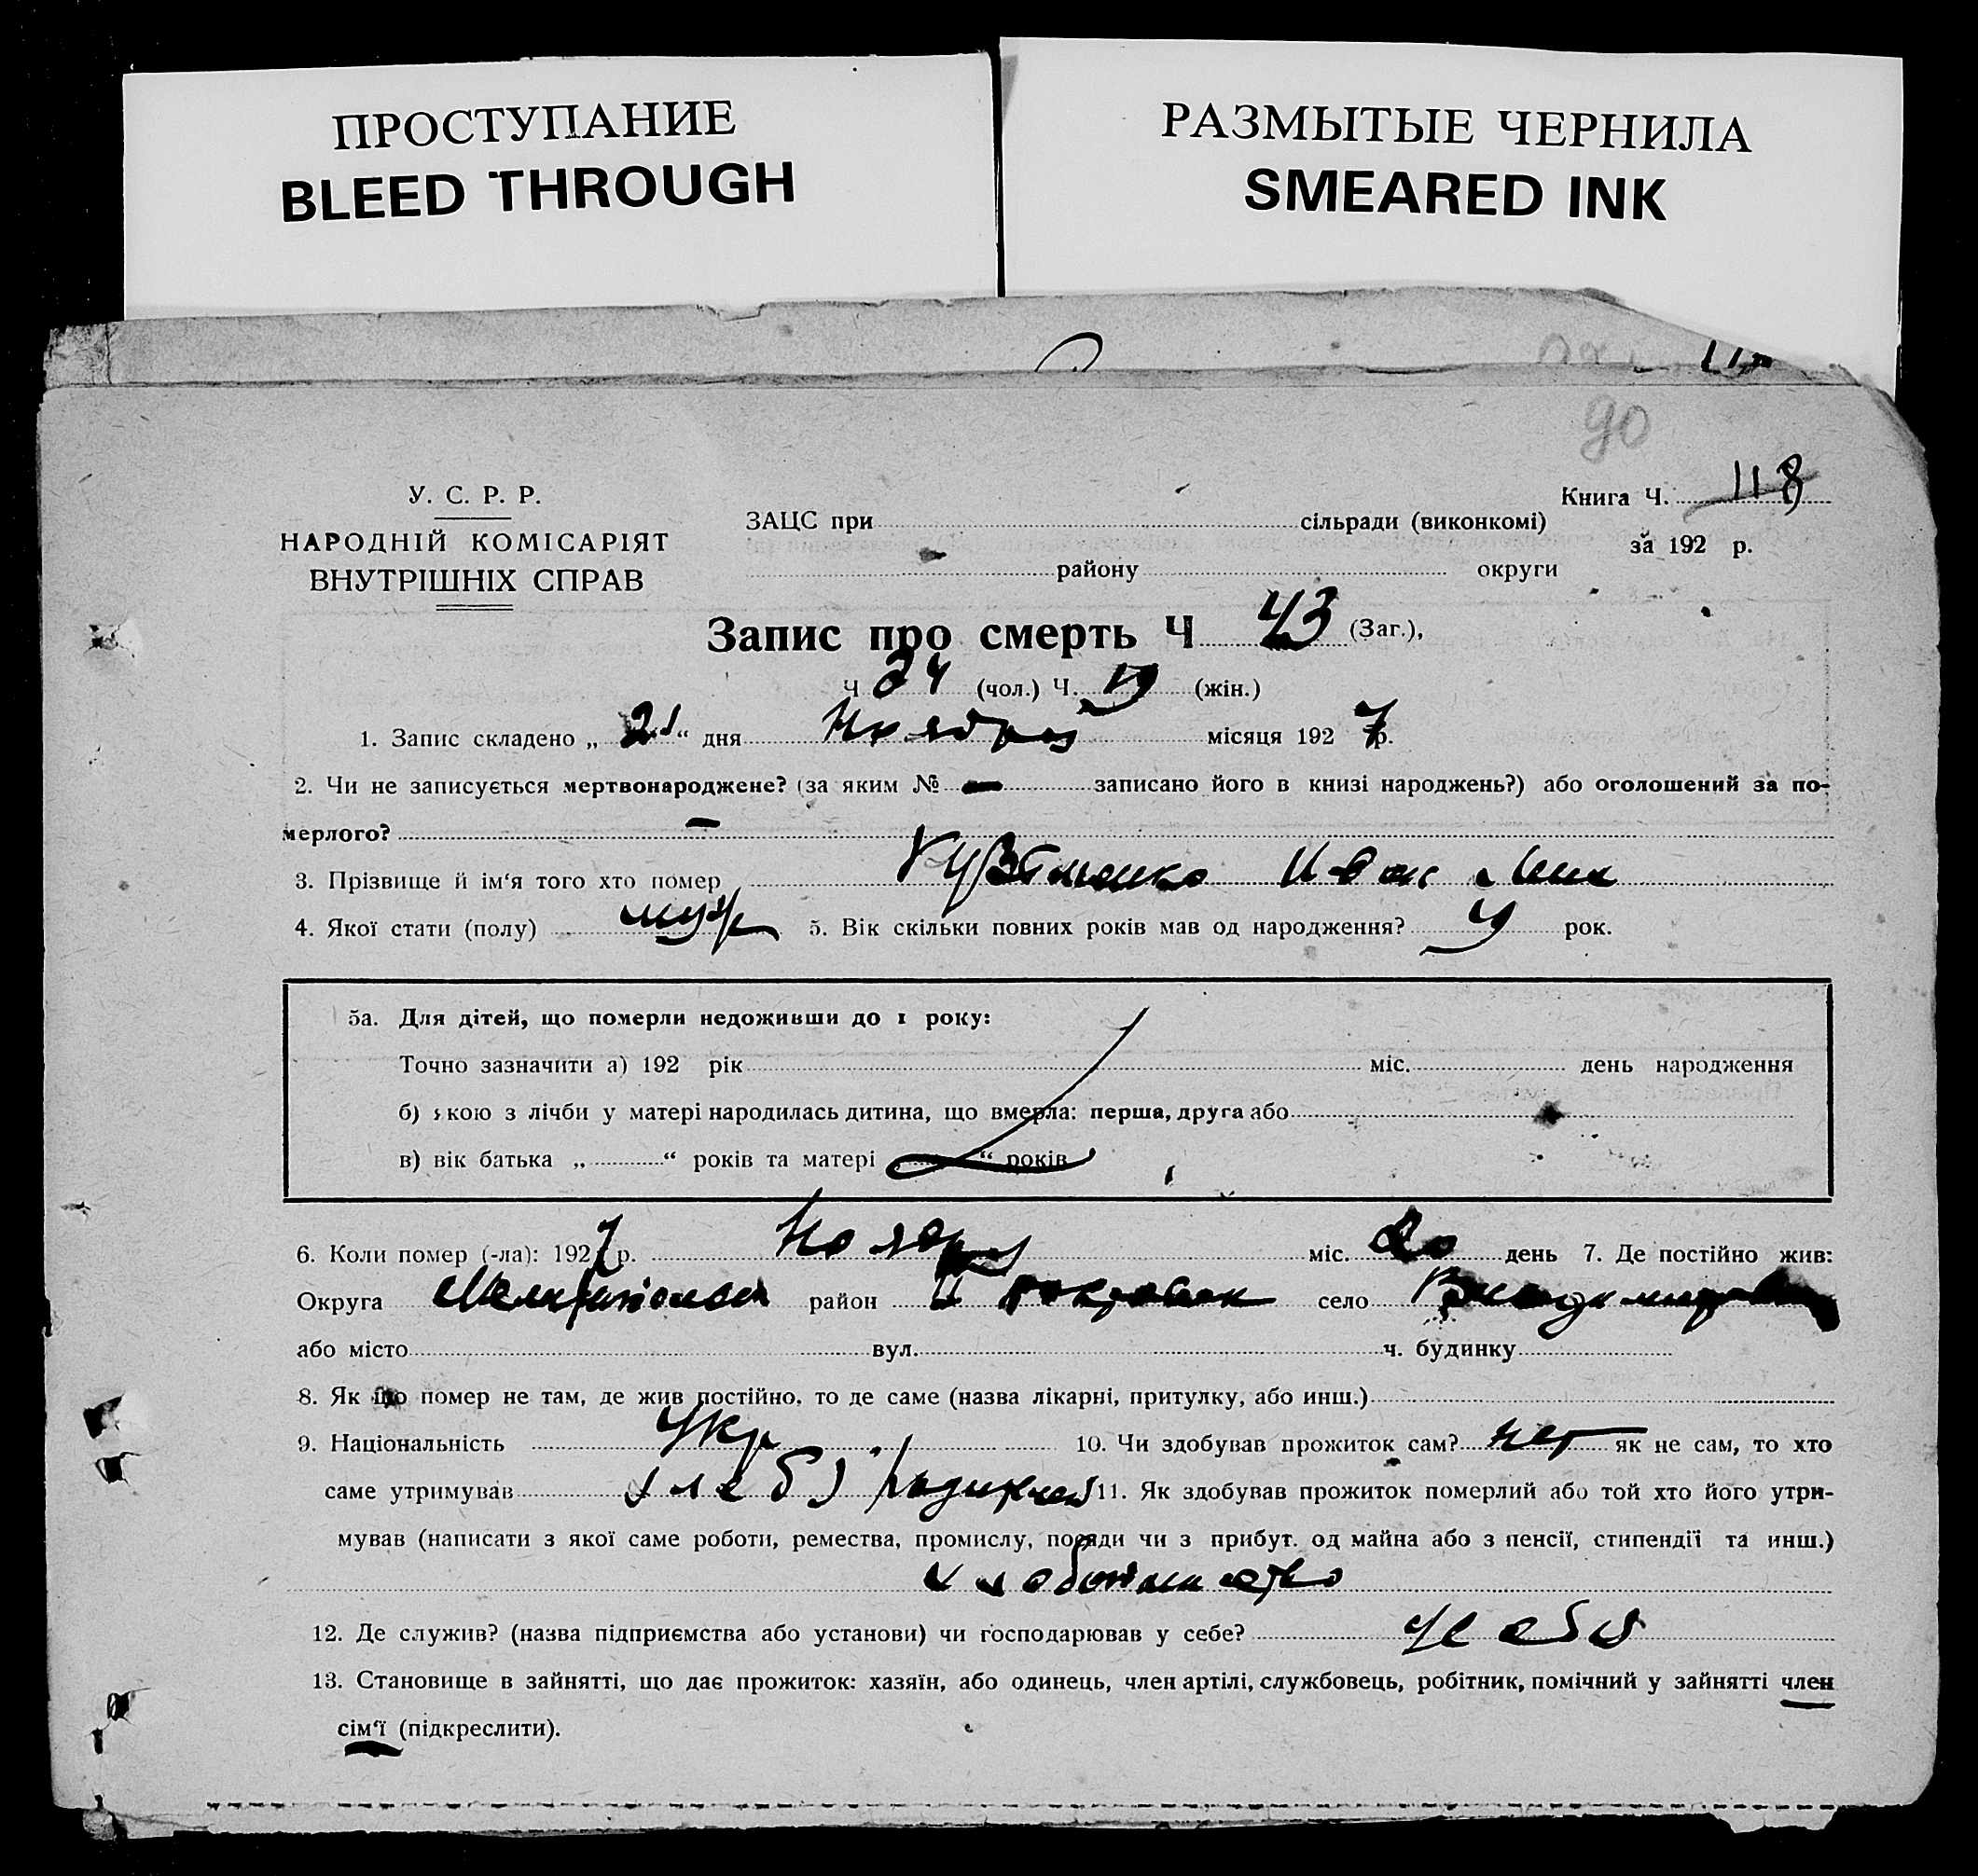 ПРОСТУПАНИЕ
BLEED THROUGH
РАЗМЫТЫЕ ЧЕРНИЛА
SMEARED INK
90
У. С. Р. Р.
НАРОДНІЙ КОМІСАРІЯТ
ВНУТРІШНІХ СПРАВ
Книга Ч. 118
за 192 р.
ЗАЦС при сільради (виконкомі)
району округи
Запис про смерть Ч 43 (Заг.),
Ч 24 (чол.) Ч. 19 (жін.)
1. Запис складено „ 21 “ дня Ноября місяця 192 7 р.
2. Чи не записується мертвонароджене? (за яким № — записано його в книзі народжень?) або оголошений за по-
мерлого? —
3. Прізвище й ім‘я того хто помер Иван
4. Якої стати (полу) муж 5. Вік скільки повних років мав од народження? рок.
5а. Для дітей, що померли недоживши до 1 року:
Точно зазначити а) 192 рік міс. день народження
б) якою з лічби у матері народилась дитина, що вмерла: перша, друга або
в) вік батька „ “ років та матері “ років
6. Коли помер (-ла): 1927 р. Ноября міс. 20 день 7. Де постійно жив:
Округа Мелитопольск район село
або місто вул. ч. будинку
8. Як що помер не там, де жив постійно, то де саме (назва лікарні, притулку, або инш.)
9. Національність Укр 10. Чи здобував прожиток сам? нет як не сам, то хто
саме утримував 11. Як здобував прожиток померлий або той хто його утри-
мував (написати з якої саме роботи, ремества, промислу, посяди чи з прибут. од майна або з пенсії, стипендії та инш.)
12. Де служив? (назва підприємства або установи) чи господарював у себе? у себя
13. Становище в зайнятті, що дає прожиток: хазяїн, або одинець, член артілі, службовець, робітник, помічний у зайнятті член
сім‘ї (підкреслити).